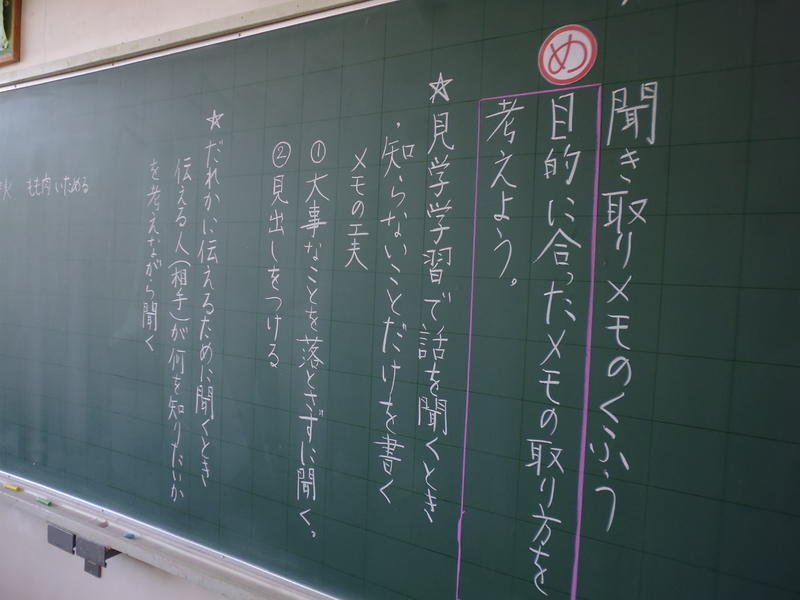 聞き取りメモのくふう
め
目的に合ったメモの取り方を
考えよう。
☆見学学習で話を聞くとき
・知らないことだけを書く
メモの工夫
①大事なことを落とさずに聞く。
②見出しをつける
☆だれかに伝えるために聞くとき
伝える人(相手)が何を知りたいか
を考えながら聞く
もも肉いためる